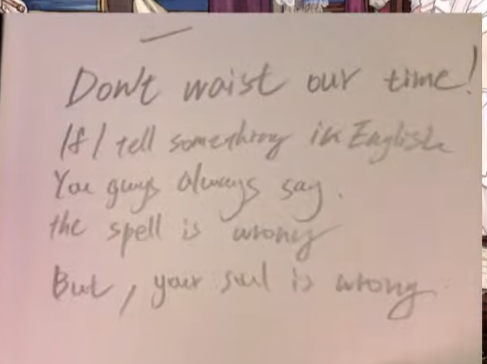 Don't waist our time!
If I tell something in English
You guys always say.
the spell is wrong
But, your soul is wrong.